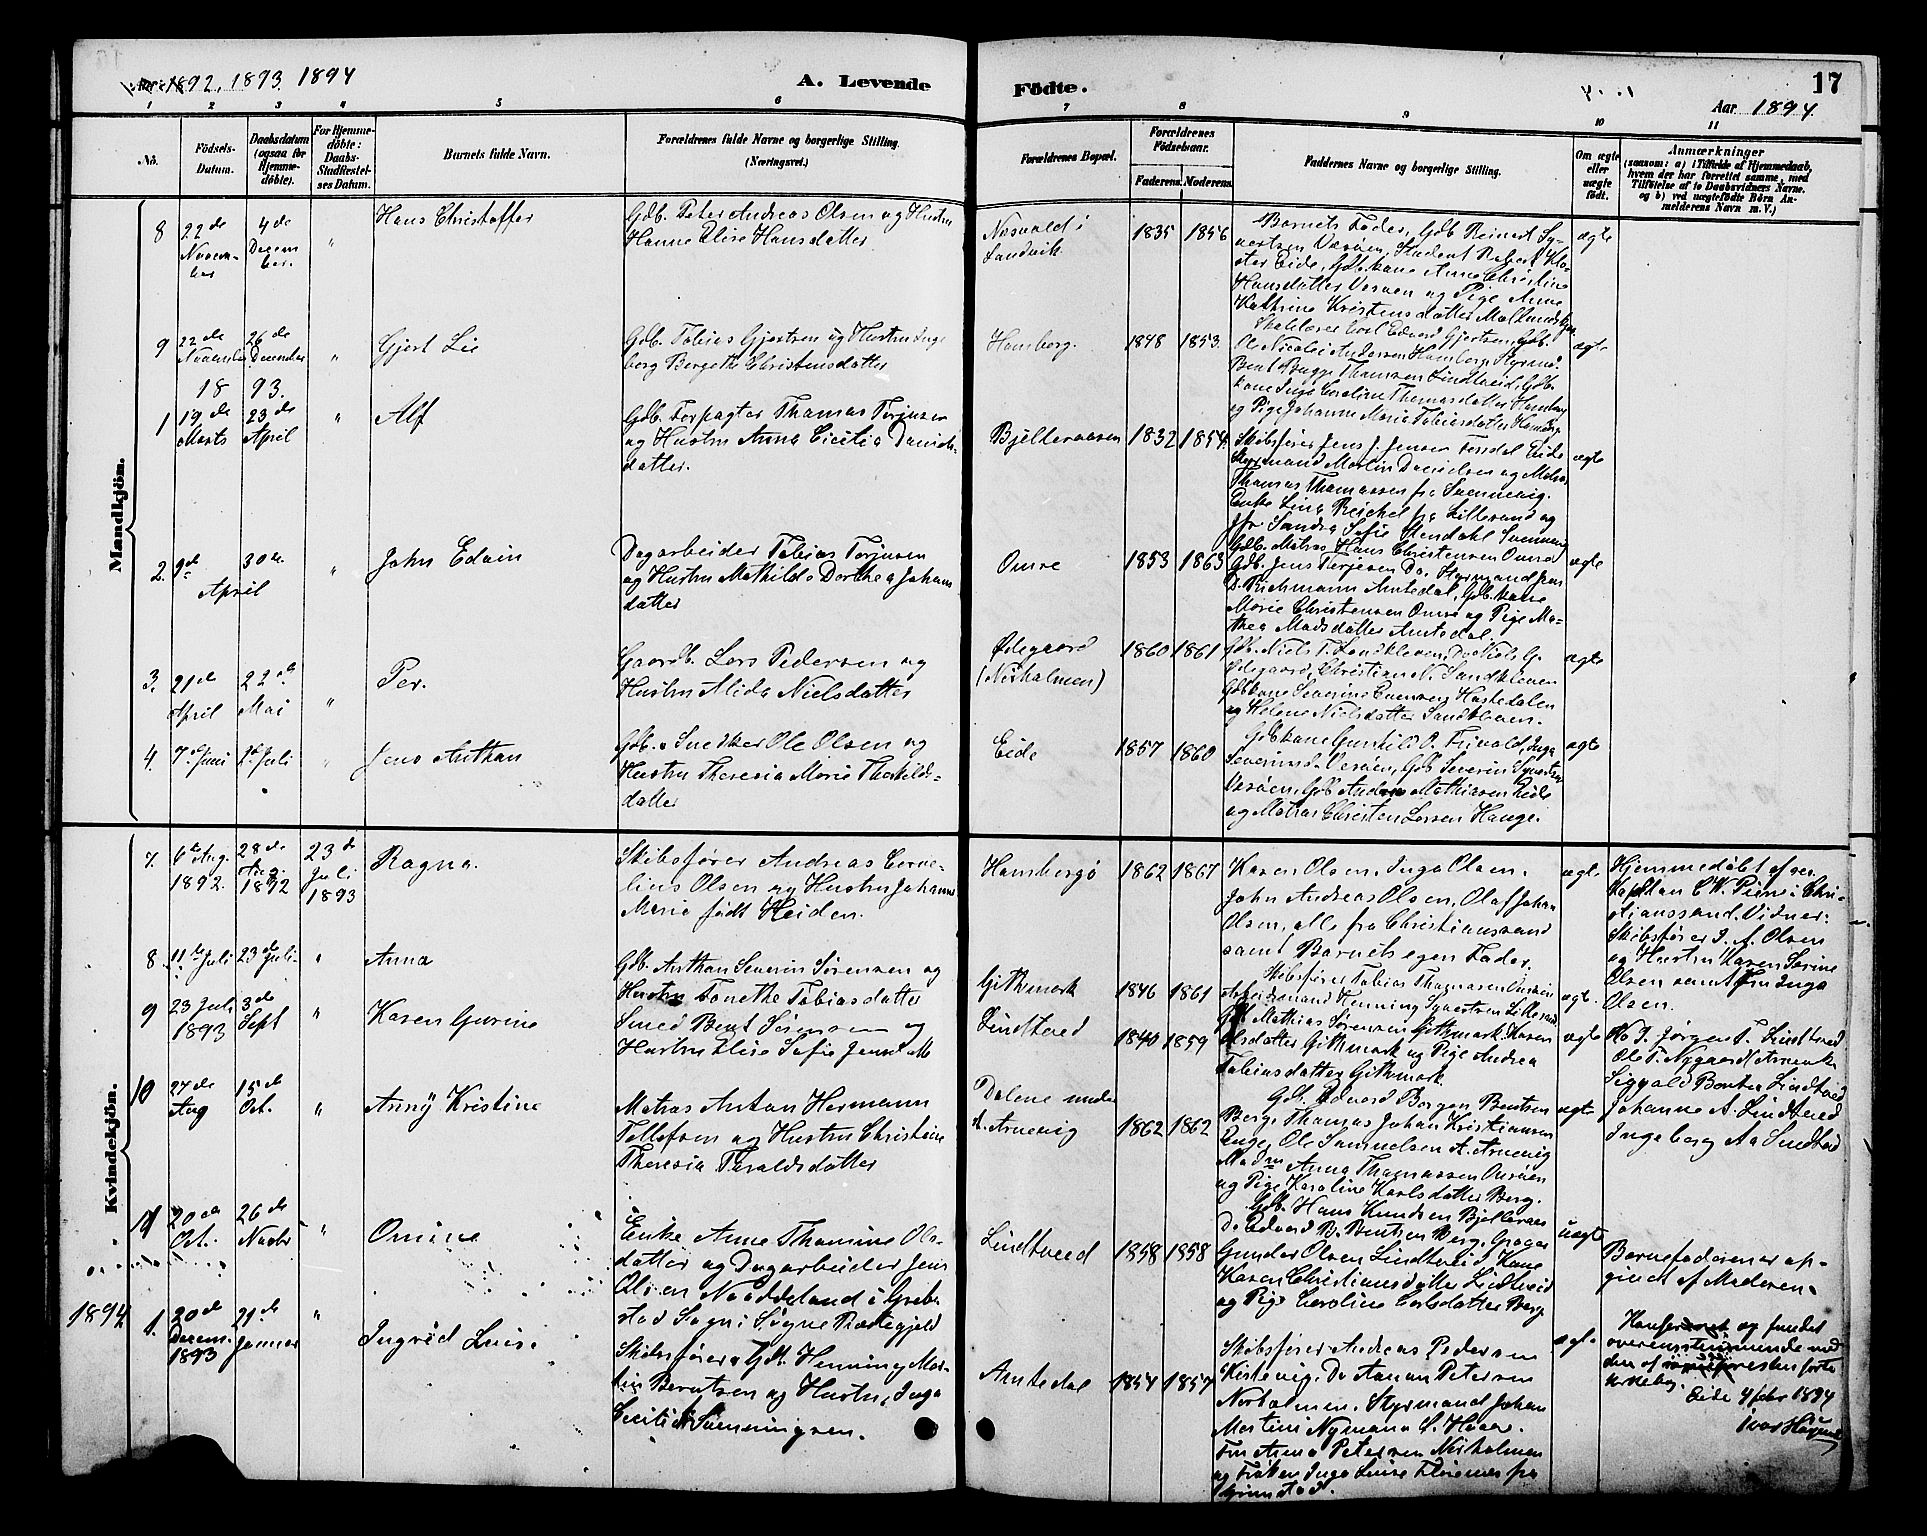 1892, 1893. 1894
A. Levende
Födte.
17
Aar 1894.
1
2
3
4
5
6
7
8
9
10
11
No.
Födsels-
Datum.
Daabsdatum
(ogsaa for
Hjemme-
döbte).
For Hjemme-
döbte:
Daabs-
Stadfæstel-
ses Datum.
Barnets fulde Navn.
Forældrenes fulde Navne og borgerlige Stilling.
(Næringsvei.)
Forældrenes Bopæl.
Forældrenes
Födselsaar.
Faderens.
Moderens.
Faddernes Navne og borgerlige Stilling.
Om ægte
eller
uægte
födt.
Anmærkninger
(saasom: a) i Tilfælde af Hjemmedaab,
hvem der har forrettet samme, med
Tilföielse af to Daabsvidners Navne.
og b) ved uægtefödte Börn An-
melderens Navn m. V.)
Mandkjön.
8
22de
Novem-
ber
4de
Decem-
ber.
"
Hans Christoffer
Gdb. Peter Andreas Olsen og Hustru
Hanne Elise Hansdatter
Næsvald i
Landvik
1835
1856
Barnets Fader, Gdb. Reinert Sy-
vertsen Vesøen, Student Robert Klo-
ster Eide, Gdb.kone Anne Christine
Hansdatter Vesøen og Pige Anne
Kathrine Kristensdatter
ægte
9
22de
November
26de
December
"
Gjert Lie
Gdb. Tobias Gjertsen og Hustru Inge
borg Bergethe Christensdatter
Homborg.
1848
1853.
Skolelærer Carl Edvard Gjertsen, Gdb.
Ole Nicolai Andersen Homborg, Styrmd.
Bent Bugge Thomsen Lindtveid, Gdb.
kone Inga Caroline Thomasdatter Homborg
og Pige Johanne Marie Tobiasdatter Homborg
ægte
1893.
1
19de
Marts
23de
April
"
Alf
Gdb. Forpagter Thomas Terjesen
og Hustru Anna Cicilia Daniels-
datter.
Bjelleraasen
1832
1854
Skibsfører Jens J. Jensen Eide
Styrmand Martin Danielsen og Matros
Thomas Thomassen fra Svennevig.
Enke Lina Reichel fra Lillesand og
Jfr Sandra Sofie Stendahl Svennevig
ægte
2.
9de
April
30te
"
John Edvin
Dagarbeider Tobias Terjesen
og Hustru Mathilde Dorthea Johans
datter
Omre
1853
1863
Gdb. Matros Hans Christensen Omre
Gdb. Jens Terjesen Do, Styrmand Jens
D. Richmann Amtedal, Gdb.kone
Marie Christensen Omre og Pige Ma-
thea Madsdatter Amtedal.
ægte
3.
21de
April
22de
Mai
"
Per.
Gaardb. Lars Pedersen og
Hustru Alida Nielsdatter
Ødegaard
(Nørholmen)
1860
1861
Gdb. Niels T. Sandkleven, Do Niels G.
Ødegaard, Christian N. Sandkleven
Gdbkone Severine Evensen Hastedalen
og Helene Nielsdatter Sandkleven.
ægte
4.
7de Juni
2de Juli
"
Jens Anthon
Gdb. Snedker Ole Olsen og
Hustru Theresia Marie Thorkilds-
datter
Eide
1857
1860
Gdbkone Gunhild O. Trivold, Inga
Severinsd. Vesøen, Gdb Severin Syvertsen
Vesøen, Gdb Andreas Mathiasen Eide
og Matros Christen Larsen Hauge.
ægte
Kvindekjön.
7.
6te Aug.
1892.
28de
Aug.
1892
23de
Juli
1893
Ragna.
Skibsfører Andreas Corne-
lius Olsen og Hustru Johanne
Marie født Heiden.
Homborgø
1862
1867
Karen Olsen, Inga Olsen.
John Andreas Olsen, Olaf Johan
Olsen, alle fra Christianssand
samt Barnets egen Fader.
ægte
Hjemmedøbt af res.
Kapellan C. W. i Chri-
stianssand. Vidner:
Skibsfører J. A. Olsen
og Hustru Karen Serine
Olsen samt Frk. Inga
Olsen.
8
11te Juli
23de Juli
"
Anna
Gdb. Anthon Severin Sørensen og
Hustru Tonethe Tobiasdatter
Githmark
1846
1861
Skibsfører Tobias Thomassen
Arbeidsmand Henning Syvertsen Lillesand
Gdb Mathias Sørensen Githmark, Karen
Olsdatter Githmark og Pige Andrea
Tobiasdatter Githmark.
ægte
9
23 Juli
1893
3de
Sept
"
Karen Gurine
Smed Bent Sørensen og
Hustru Elise Sofie
Lindtveid
1840
1859
ægte
Jørgen T. Lindtveid
Ole T. Nygaard
Sigvald Bentsen Lindtveid
Johanne A. Lindtveid
Ingeborg Aa Lindtveid
10
27de
Aug
15de
Oct.
"
Anny Kristine
Matros Anton Hermann
Tellefsen og Hustru Christine
Theresia Taraldsdatter
Dalene under
A. Arnevig
1862
1862
Gdb. Edvard Borgen Bentsen
Berg, Thomas Johan Kristiansen
Ole Samuelsen A. Arnevig
Madm Anna Thomassen
og Pige Karoline Karlsdatter Berg.
ægte
11
20de
Oct.
26de
Novbr
"
Omine
Enke Anne Thomine Ols-
datter og Dagarbeider Jens
Olsen Nøddeland i Greb-
stad Sogn i Søgne Præstegjeld
Lindtveed
1858
1858
Gdb. Hans Knudsen Bjelleraas
Do Edvard B. Bentsen Berg,
Gunder Olsen Lindtveid, Kone
Karen Christiansdatter Lindtveid
og Pige Caroline Carlsdatter Berg
uægte
Barnefaderen er op-
givet af Moderen.
1894
1.
20de
Decem.
1893
21de
Januar
"
Ingrid Luise
Skibsfører & Gdb. Henning Mar-
tin Berntsen og Hustru Inga
Cecilie Svenningsen.
Amtedal
1854
1857
Skibsfører Andreas Pedersen
Kirkevig, Do Anton Petersen
Norholmen, Styrmand Johan
Martini Nymann
Fru Anna Petersen Norholmen
og Frøken Inga Luise fra
Grimstad.
ægte
Konfereret og fundet
overensstemmende med
den af præsten førte
kirkebog.
Eide 4 febr 1894